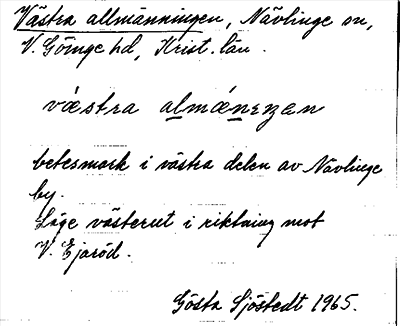 Västra allmänningen, Nävlinge sn,
V. Göinge hd, Krist. län.
västra almäningen
betesmark i västra delen av Nävlinge
by.
Läge västerut i riktning mot
V. Ejaröd.
Gösta Sjöstedt 1965.